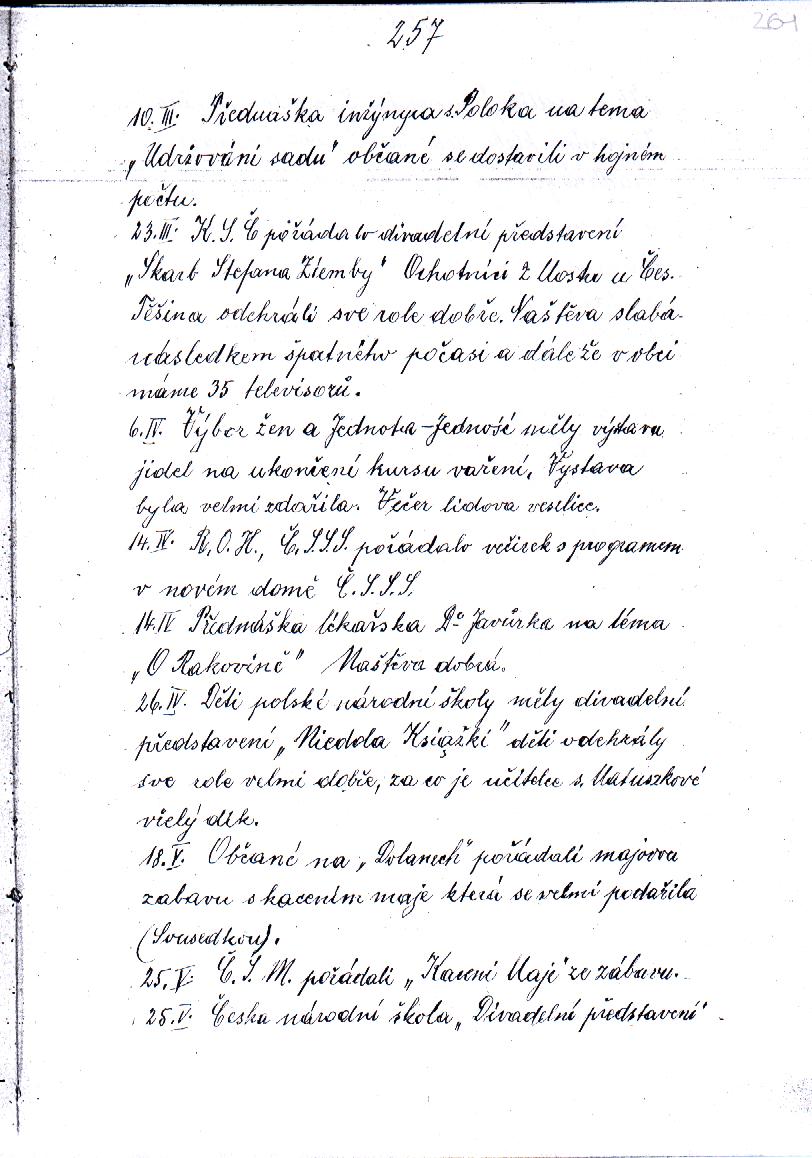 257
261
10. III. Přednáška inžýnyra s. Poloka na tema
„Udržování sadu" občané se dostavili v hojném
počtu.
23. III. K. S. Č pořádalo divadelní představení
„Skarb Stefana Ziemby" Ochotnici z Mostu u Čes.
Těšina odehráli sve role dobře. Naštěva slabá
následkem špatného počasi a dále že v obci
máme 35 televisorů.
6. IV. Výbor žen a Jednota-Jedność měly výstavu
jidel na ukončení kursu vaření. Vystava
byla velmi zdařila. Večer lidova veselice.
14. IV. R. O. H., Č.S.S.S. pořádalo večirek s programem
v novém domě Č.S.S.S.
14. IV Přednáška lékařska Dr Javůrka na téma
„O Rakovině" Naštěva dobrá.
26. IV. Děti polské národní školy měly divadelní
představení „Niedola Książki" děti odehrály
sve role velmi dobře, za co je učitelce s. Matuszkové
vřelý dík.
18. V. Občané na „Dolanech" pořádali majovou
zabavu s kacením maje která se velmi podařila
(Sousedkou).
25. V. Č. S. M. pořádali „Kaceni Maje" ze zábavu.
25. V. Česka národní škola „Divadelní představení"